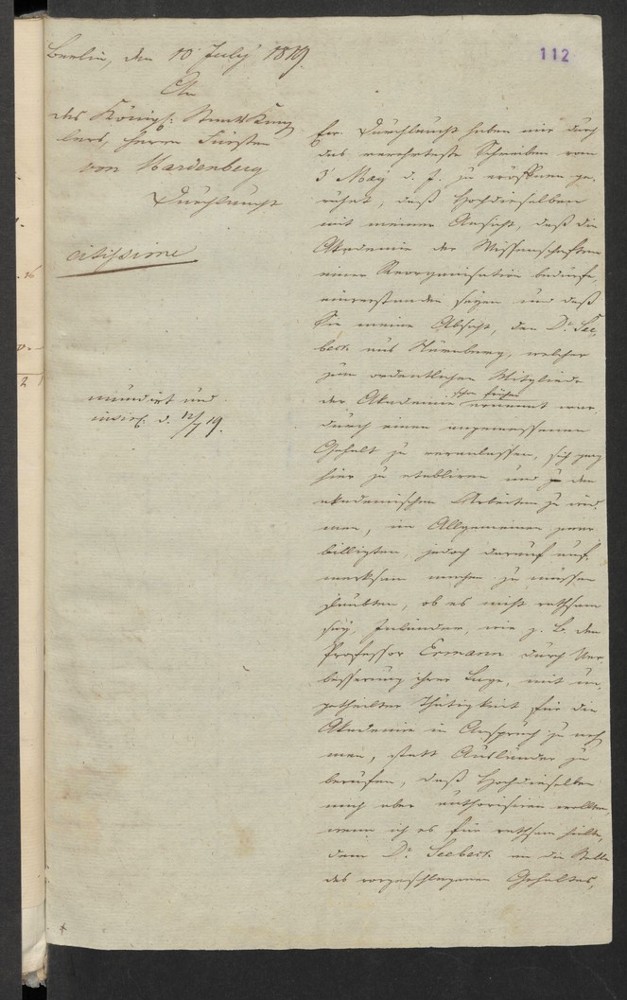 112
Berlin, den 10 July 1819.
An
des Königl: Staats Kanz
lers, Herrn Fürsten
von Hardenberg
Durchlaucht
citissime
mundirt und
d. 12/7 19.
Ew Durchlaucht haben mir durch
das verehrteste Schreiben vom
3 May d. J. zu eröffnen ge-
ruhet, daß Hochdieselben
mit meiner Ansicht, daß die
Akademie der Wissenschaften
einer Reorganisation bedürfe,
einverstanden seyen und daß
Sie meine Absicht, den Dr. See
beck aus Nürnberg, welcher
zum ordentlichen Mitgliede
der Akademie schon früher ernannt war
durch einen angemessenen
Gehalt zu veranlassen, sich ganz
hier zu etabliren und den
akademischen Arbeiten zu wid
men, im Allgemeinen zwar
billigten, jedoch darauf auf-
merksam machen zu müssen
glaubten, ob es nicht rathsam
sey, Inländer, wie z. B. den
Professor Ermann durch Ver
besserung ihrer Lage, mit un-
getheilter Thätigkeit für die
Akademie in Anspruch zu neh
men, statt Ausländer zu
berufen, daß Hochdieselben
mich aber authorisiren wollten,
wenn ich es für rathsam hielte,
dem Dr. Seebeck an die Stelle
des vorgeschlagenen Gehaltes,